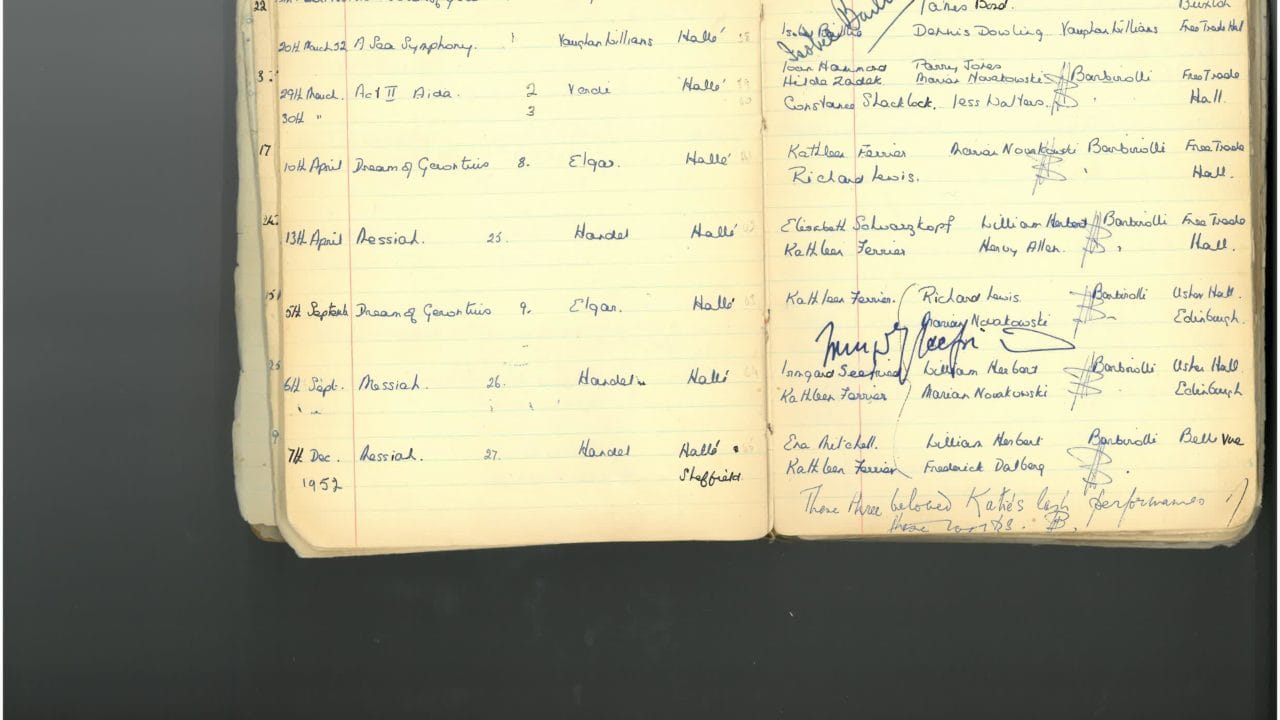 22 James Bond. Buxton
20th March 52 A Sea Symphony. 1 Vaughan Williams Hallé 58 Isobel Baillie Dennis Dowling Vaughan Williams Free Trade Hall
Isobel Baillie
Joan Hammond Parry Jones
3 29th March. Act II Aida. 2 Verdi Hallé 59 Hilda Zadek Marian Nowakowski Barbirolli Free Trade
30th " 3 60 Constance Shacklock. Jess Walters. " Hall.
17 10th April Dream of Gerontius 8. Elgar. Hallé 61 Kathleen Ferrier Marian Nowakowski Barbirolli Free Trade
Richard Lewis. " Hall.
13th April Messiah. 25. Handel Hallé 62 Elisabeth Schwarzkopf William Herbert Barbirolli Free Trade
Kathleen Ferrier Hervy Allen. " Hall.
5th Septemb Dream of Gerontius 9. Elgar. Hallé 63 Kathleen Ferrier. Richard Lewis. Barbirolli Usher Hall.
Marian Nowakowski Edinburgh.
6th Sept. Messiah. 26. Handel. Hallé 64 Irmgard Seefried William Herbert Barbirolli Usher Hall.
" " Kathleen Ferrier Marian Nowakowski Edinburgh
9 7th Dec. Messiah. 27. Handel Hallé 65 Ena Mitchell. William Herbert Barbirolli Belle Vue
1952 Sheffield. Kathleen Ferrier Frederick Dalberg
These three beloved Katie's last performances of
these works. JB.